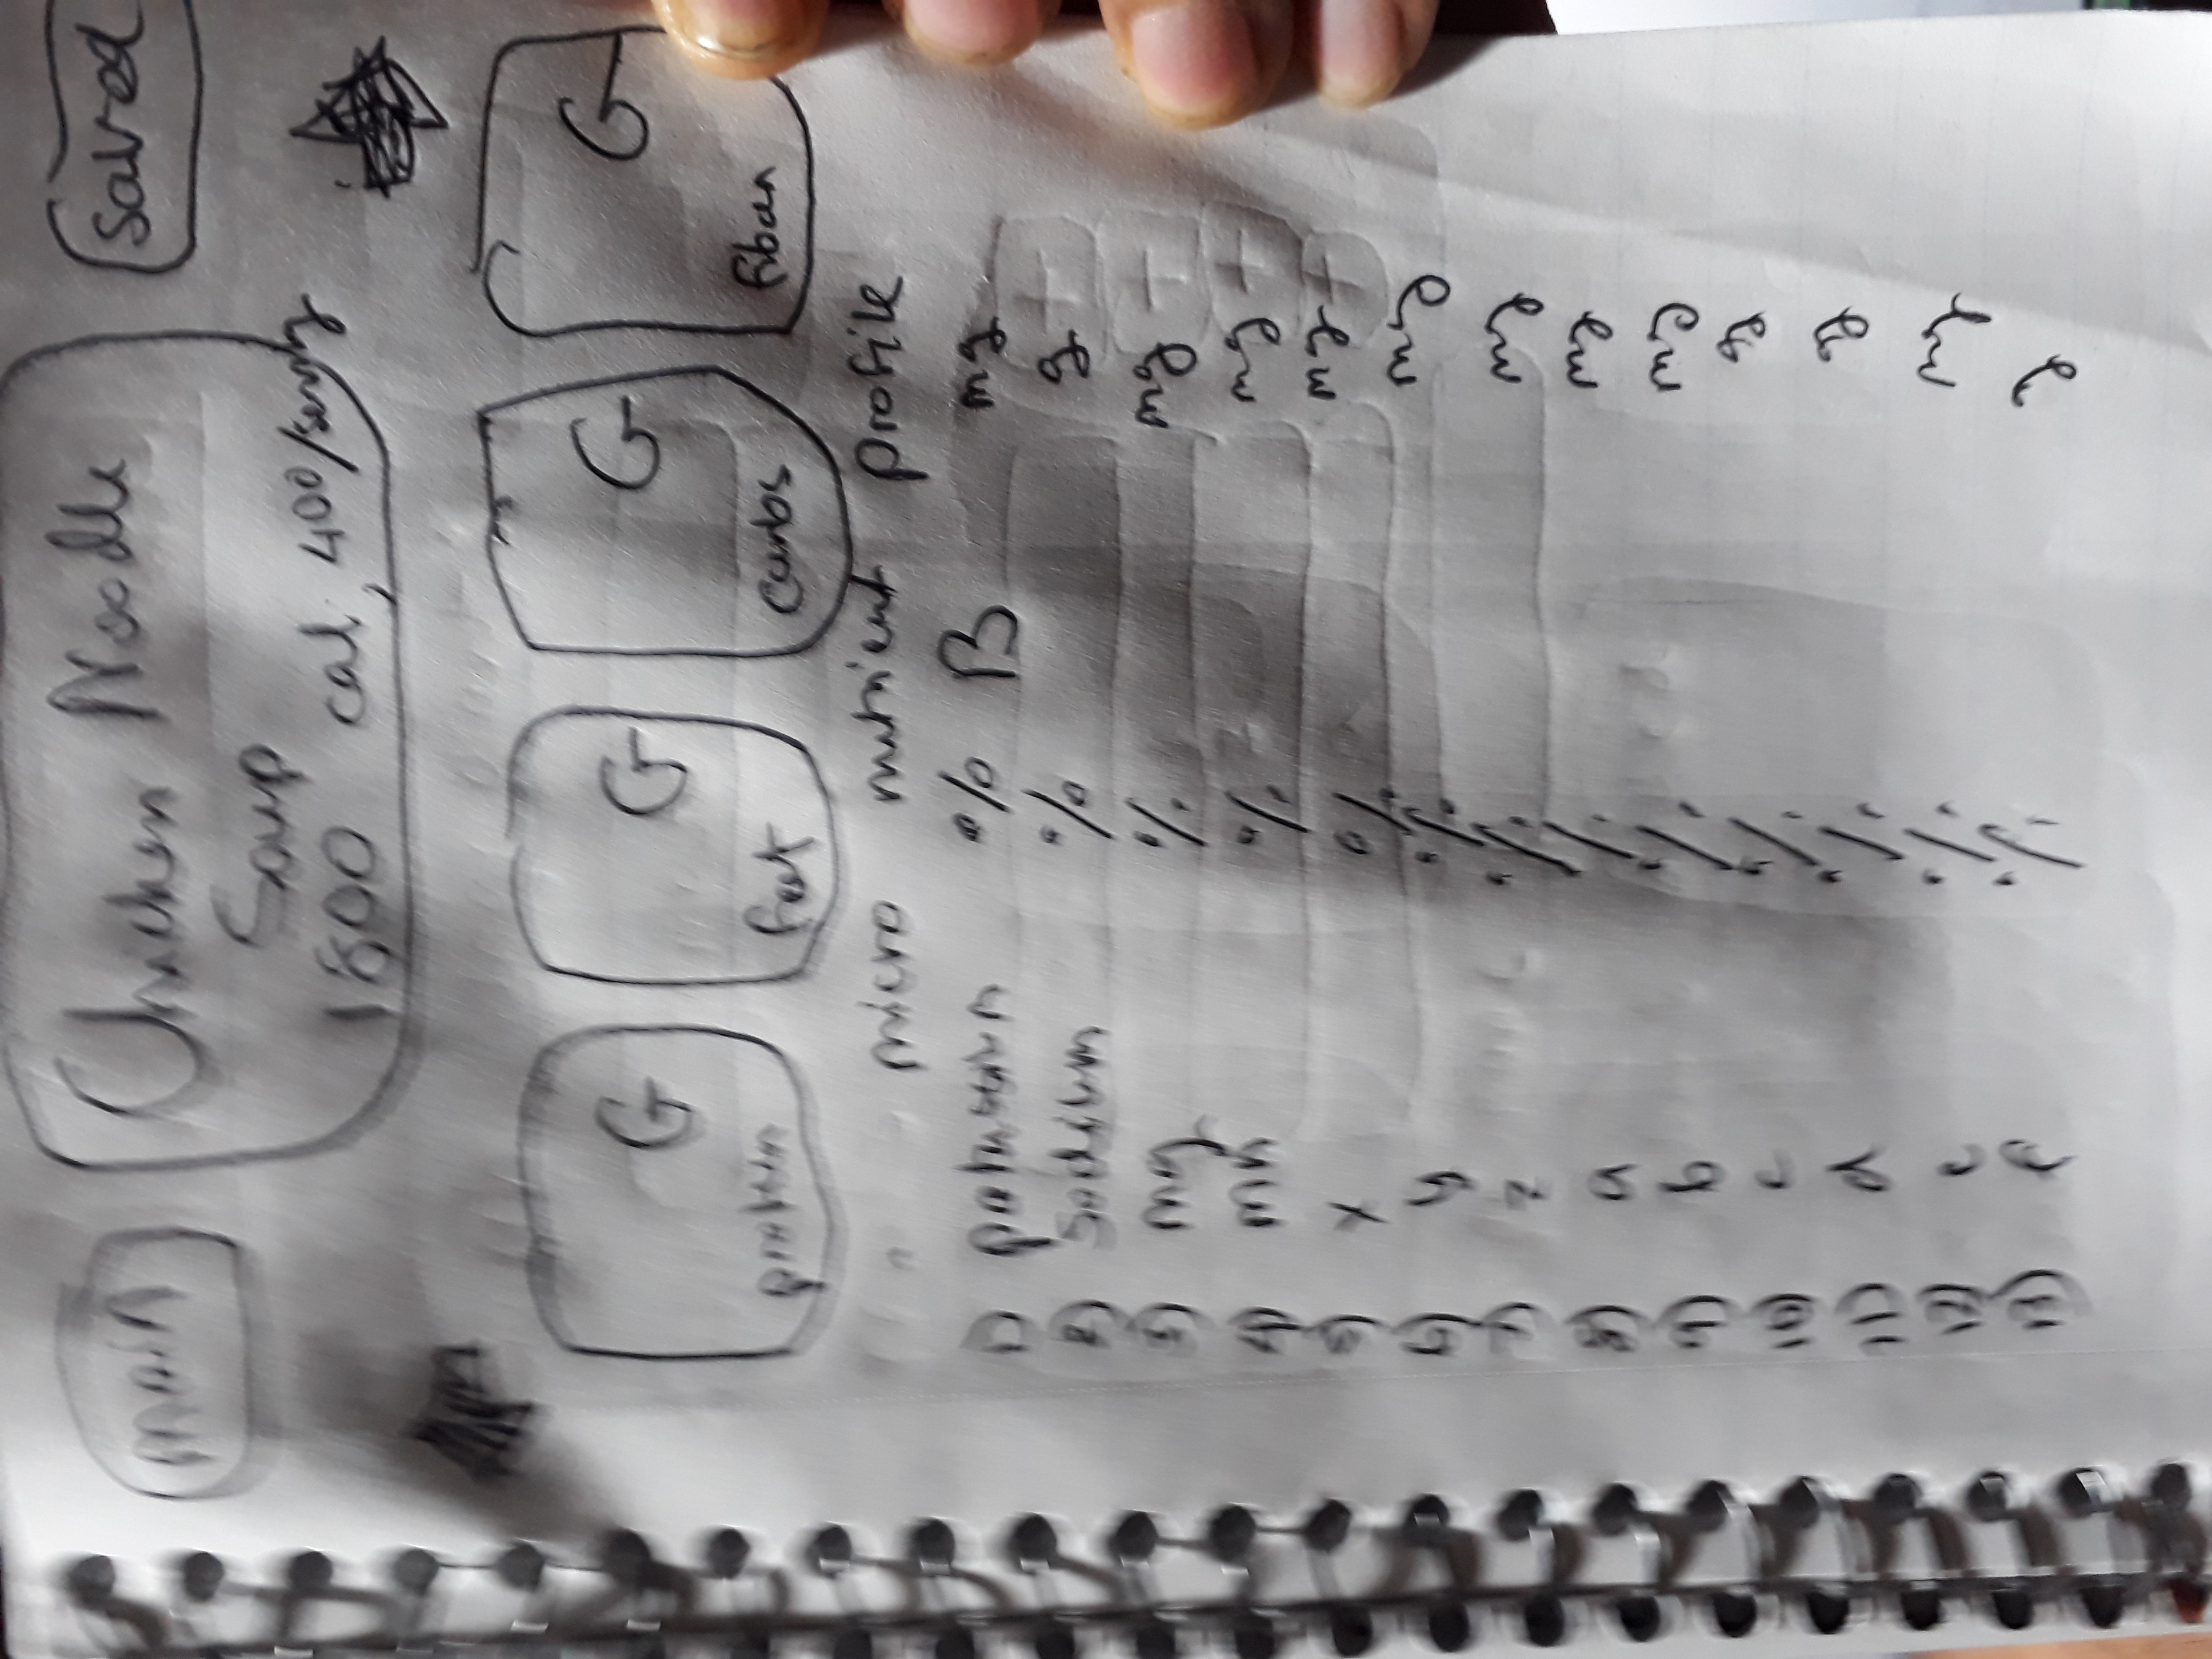 main
Chicken Noodle
Soup
1800 cal, 400/serving
saved
G
protein
G
fat
G
carbs
G
fiber
micro nutrient profile
1) potassium % B mg
2) sodium % g
3) mg % mg
4) mn % mg
5) x % mg
6) y % mg
7) z % mg
8) a % mg
9) b % mg
10) c % g
11) d % g
12) e % mg
13) f % g